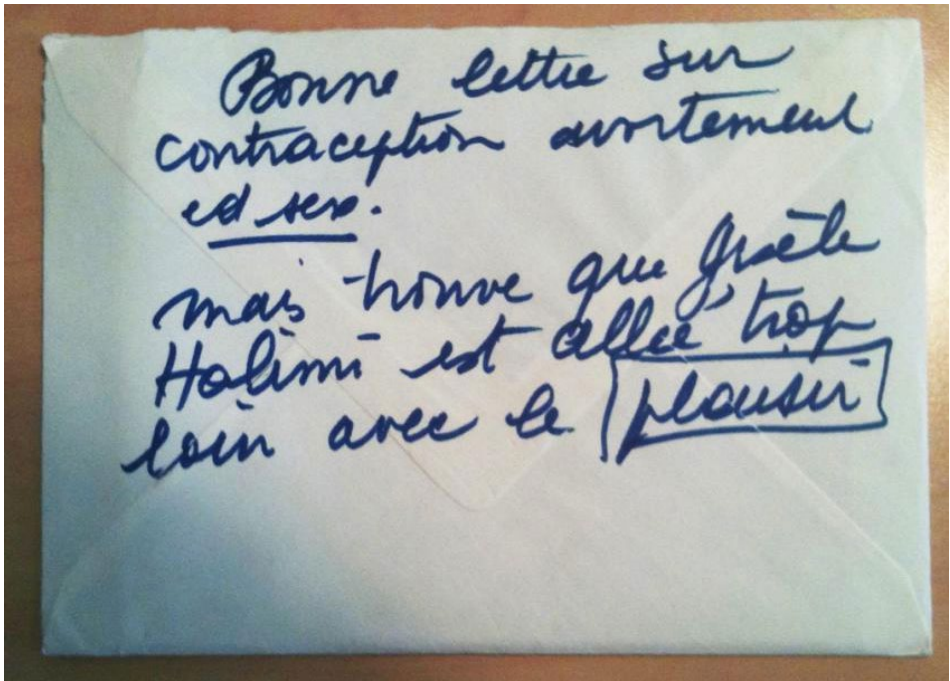 Bonne lettre sur
contraception avortement
ed sex.
mais trouve que Gisèle
Halimi est allée trop
loin avec le plaisir